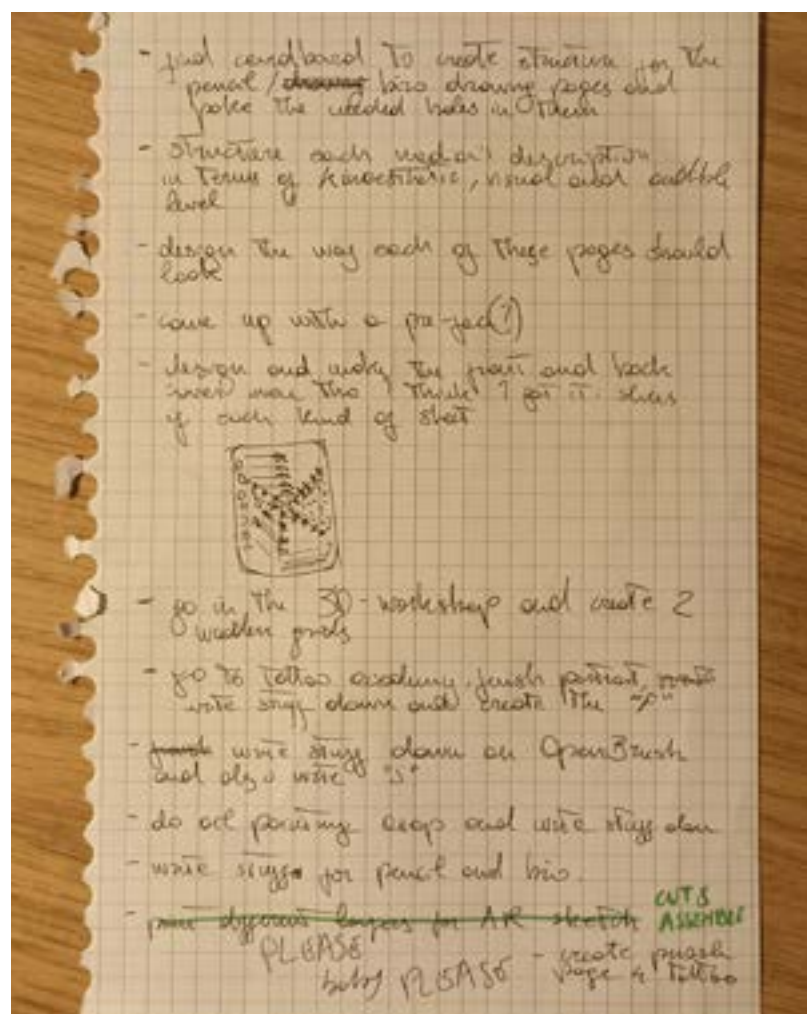 - find cardboard to create structure for the
pencil / drawing biro drawing pages and
poke the needed holes in them
- structure each medium's description
in terms of kinaesthetic, visual and audible
level
- design the way each of these pages should
look
- come up with a (?)
- design and make the front and back
I think I got it.
of each kind of sheet
- go in the 3D-workshop and create 2
wooden
- go to Tattoo academy, finish portrait,
write stuff down and create the "p"
- write stuff down on OpenBrush
and also write "s"
- do oil painting asap and write stuff down
- write stuff for pencil and biro.
- print different layers for AR sketch CUT &
ASSEMBLE
PLEASE
baby PLEASE - create
page 4 tattoo